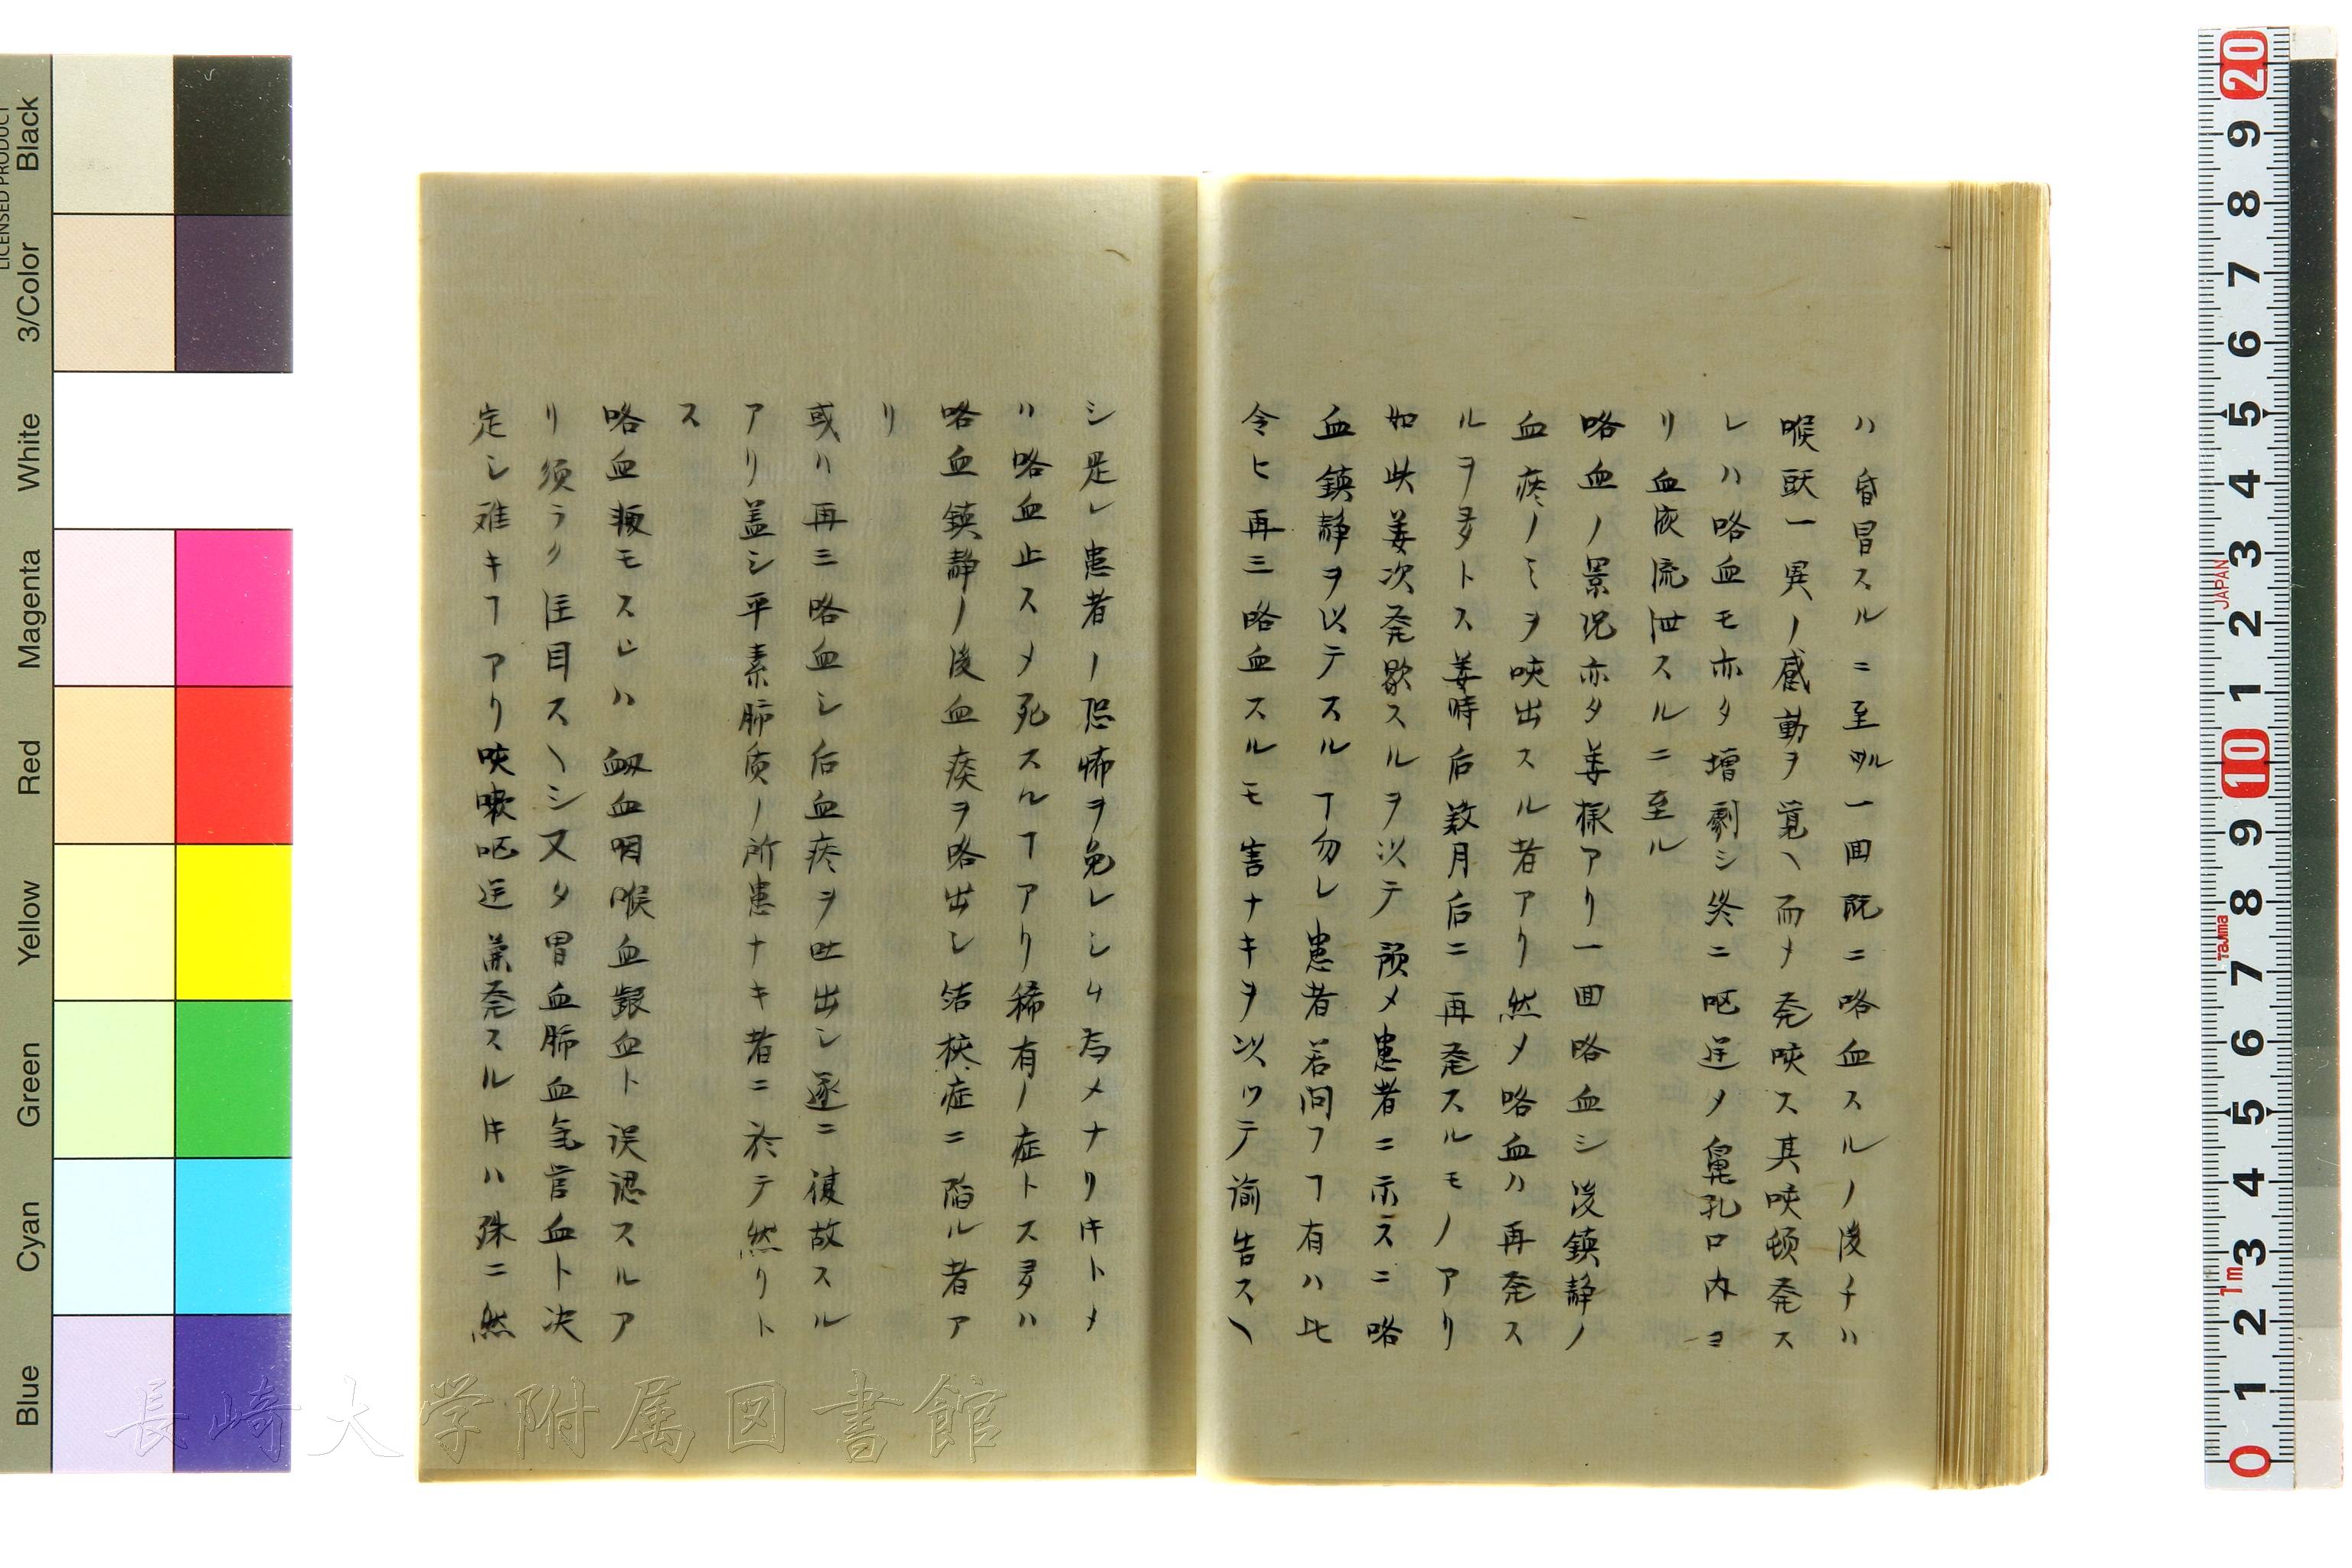 ハ昏冒スルニ至ル一回既ニ咯血スルノ後チハ
喉頭一異ノ感動ヲ覚ヘ而メ発咳ス其咳頓発ス
レハ咯血モ亦タ増劇シ終ニ呕逆メ鼻孔口内ヨ
リ血液流泄スルニ至ル
咯血ノ景況亦タ姜様アリ一回咯血シ後鎮静ノ
血痰ノミヲ咳出スル者アリ然メ咯血ハ再発ス
ルヲ多トス姜時后数月后ニ再発スルモノアリ
如此姜次発歇スルヲ以テ預メ患者ニ示スニ咯
血鎮静ヲ以テスルヿ勿レ患者若問フヿ有ハ比
令ヒ再三咯血スルモ害ナキヲ以ツテ諭告スヘ
シ是レ患者ノ恐怖ヲ免レシム為メナリ𪜈トメ
ハ咯血止スメ死スルヿアリ稀有ノ症トス多ハ
咯血鎮静ノ後血痰ヲ咯出シ結核症ニ陥ル者ア
リ
或ハ再三咯血シ后血痰ヲ吐出シ遂ニ復故スル
アリ盖シ平素肺質ノ所患ナキ者ニ於テ然リト
ス
咯血動モスレハ衂血咽喉血齦血ト誤認スルア
リ須ラク注目スヘシ又タ胃血肺血気管血ト决
定シ难キヿアリ咳嗽呕逆兼発スル𪜈ハ殊ニ然
長崎大学附属図書館
LICENSED PRODUCT
Black
3/Color
White
Magenta
Red
Yellow
Green
Cyan
Blue
20
9
8
7
6
5
4
3
JAPAN
2
1
10
9
8
Tajima
7
6
5
4
3
1m
2
1
0